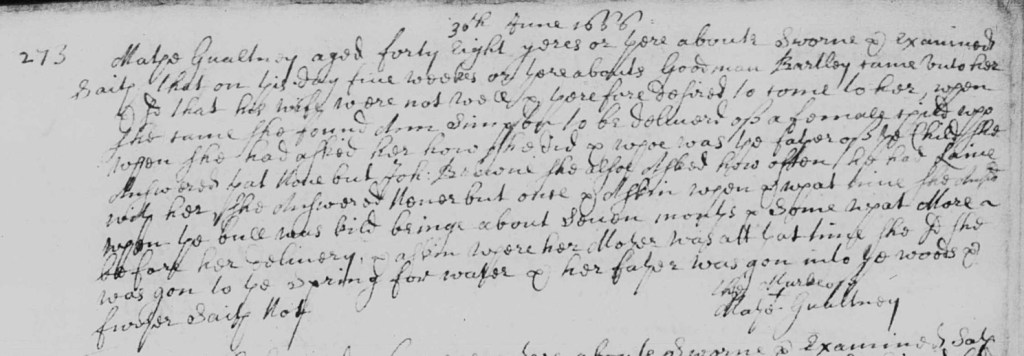 30th June 1666:
273 Mathe Gualtney aged forty Eight yeres or there abouts Sworne & Examined
Saith that on this day five weekes or thereabouts Goodman Bartley came unto her
& sd that his wife were not well & therefore desired to come to her, when
She came she found Ann Simpson to be deliverd off a female child upo
when she had asked her how she did & whoe was the father off the Child she
Answered that None but Joh: Browne she Also Asked how often he had Laine
with her she Answered Never but once & Askin when & what time she Answd
when the bull was kild beinge about Seven months & Some what More
before her delivery, & askin where her Mother was att that time she sd she
was gon to the Spring for water & her father was gon into the woods &
further Saith Not
The Marke off
Mathe + Gualtney
abouts Sworne & Examined Sath